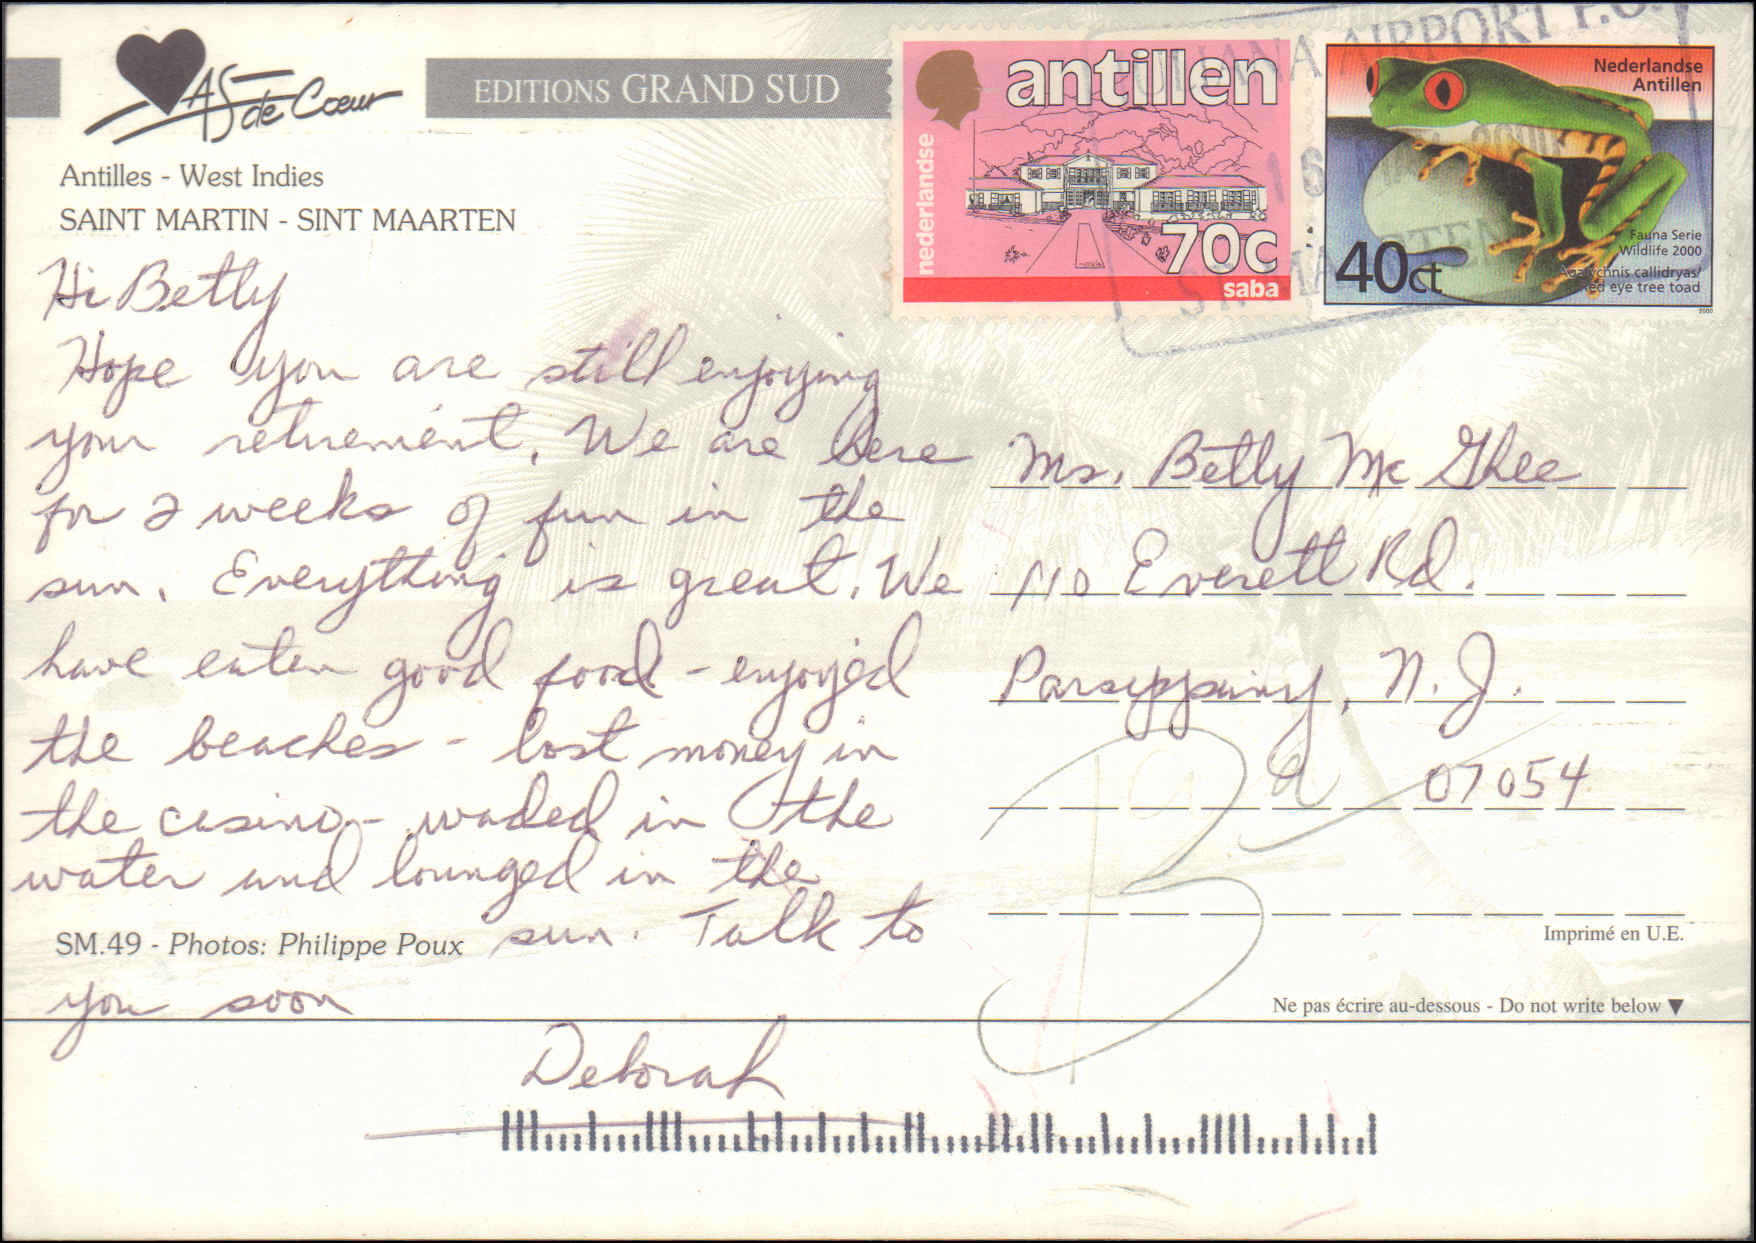 As de Cœur
EDITIONS GRAND SUD
Antilles - West Indies
SAINT MARTIN - SINT MAARTEN
antillen
nederlandse
70c
saba
Nederlandse
Antillen
40ct
Fauna Serie
Wildlife 2000
callidryas/
eye tree toad
2000
JULIANA AIRPORT P.O.
16
Hi Betty
Hope you are still enjoying
your retirement. We are here
for 2 weeks of fun in the
sun. Everything is great. We
have eaten good food - enjoyed
the beaches - lost money in
the casino - waded in the
water and lounged in the
sun. Talk to
you soon
Deborah
Ms. Betty Mc Ghee
110 Everett Rd.
Parsippany, N.J.
07054
B
SM.49 - Photos: Philippe Poux
Imprimé en U.E.
Ne pas écrire au-dessous - Do not write below ▼